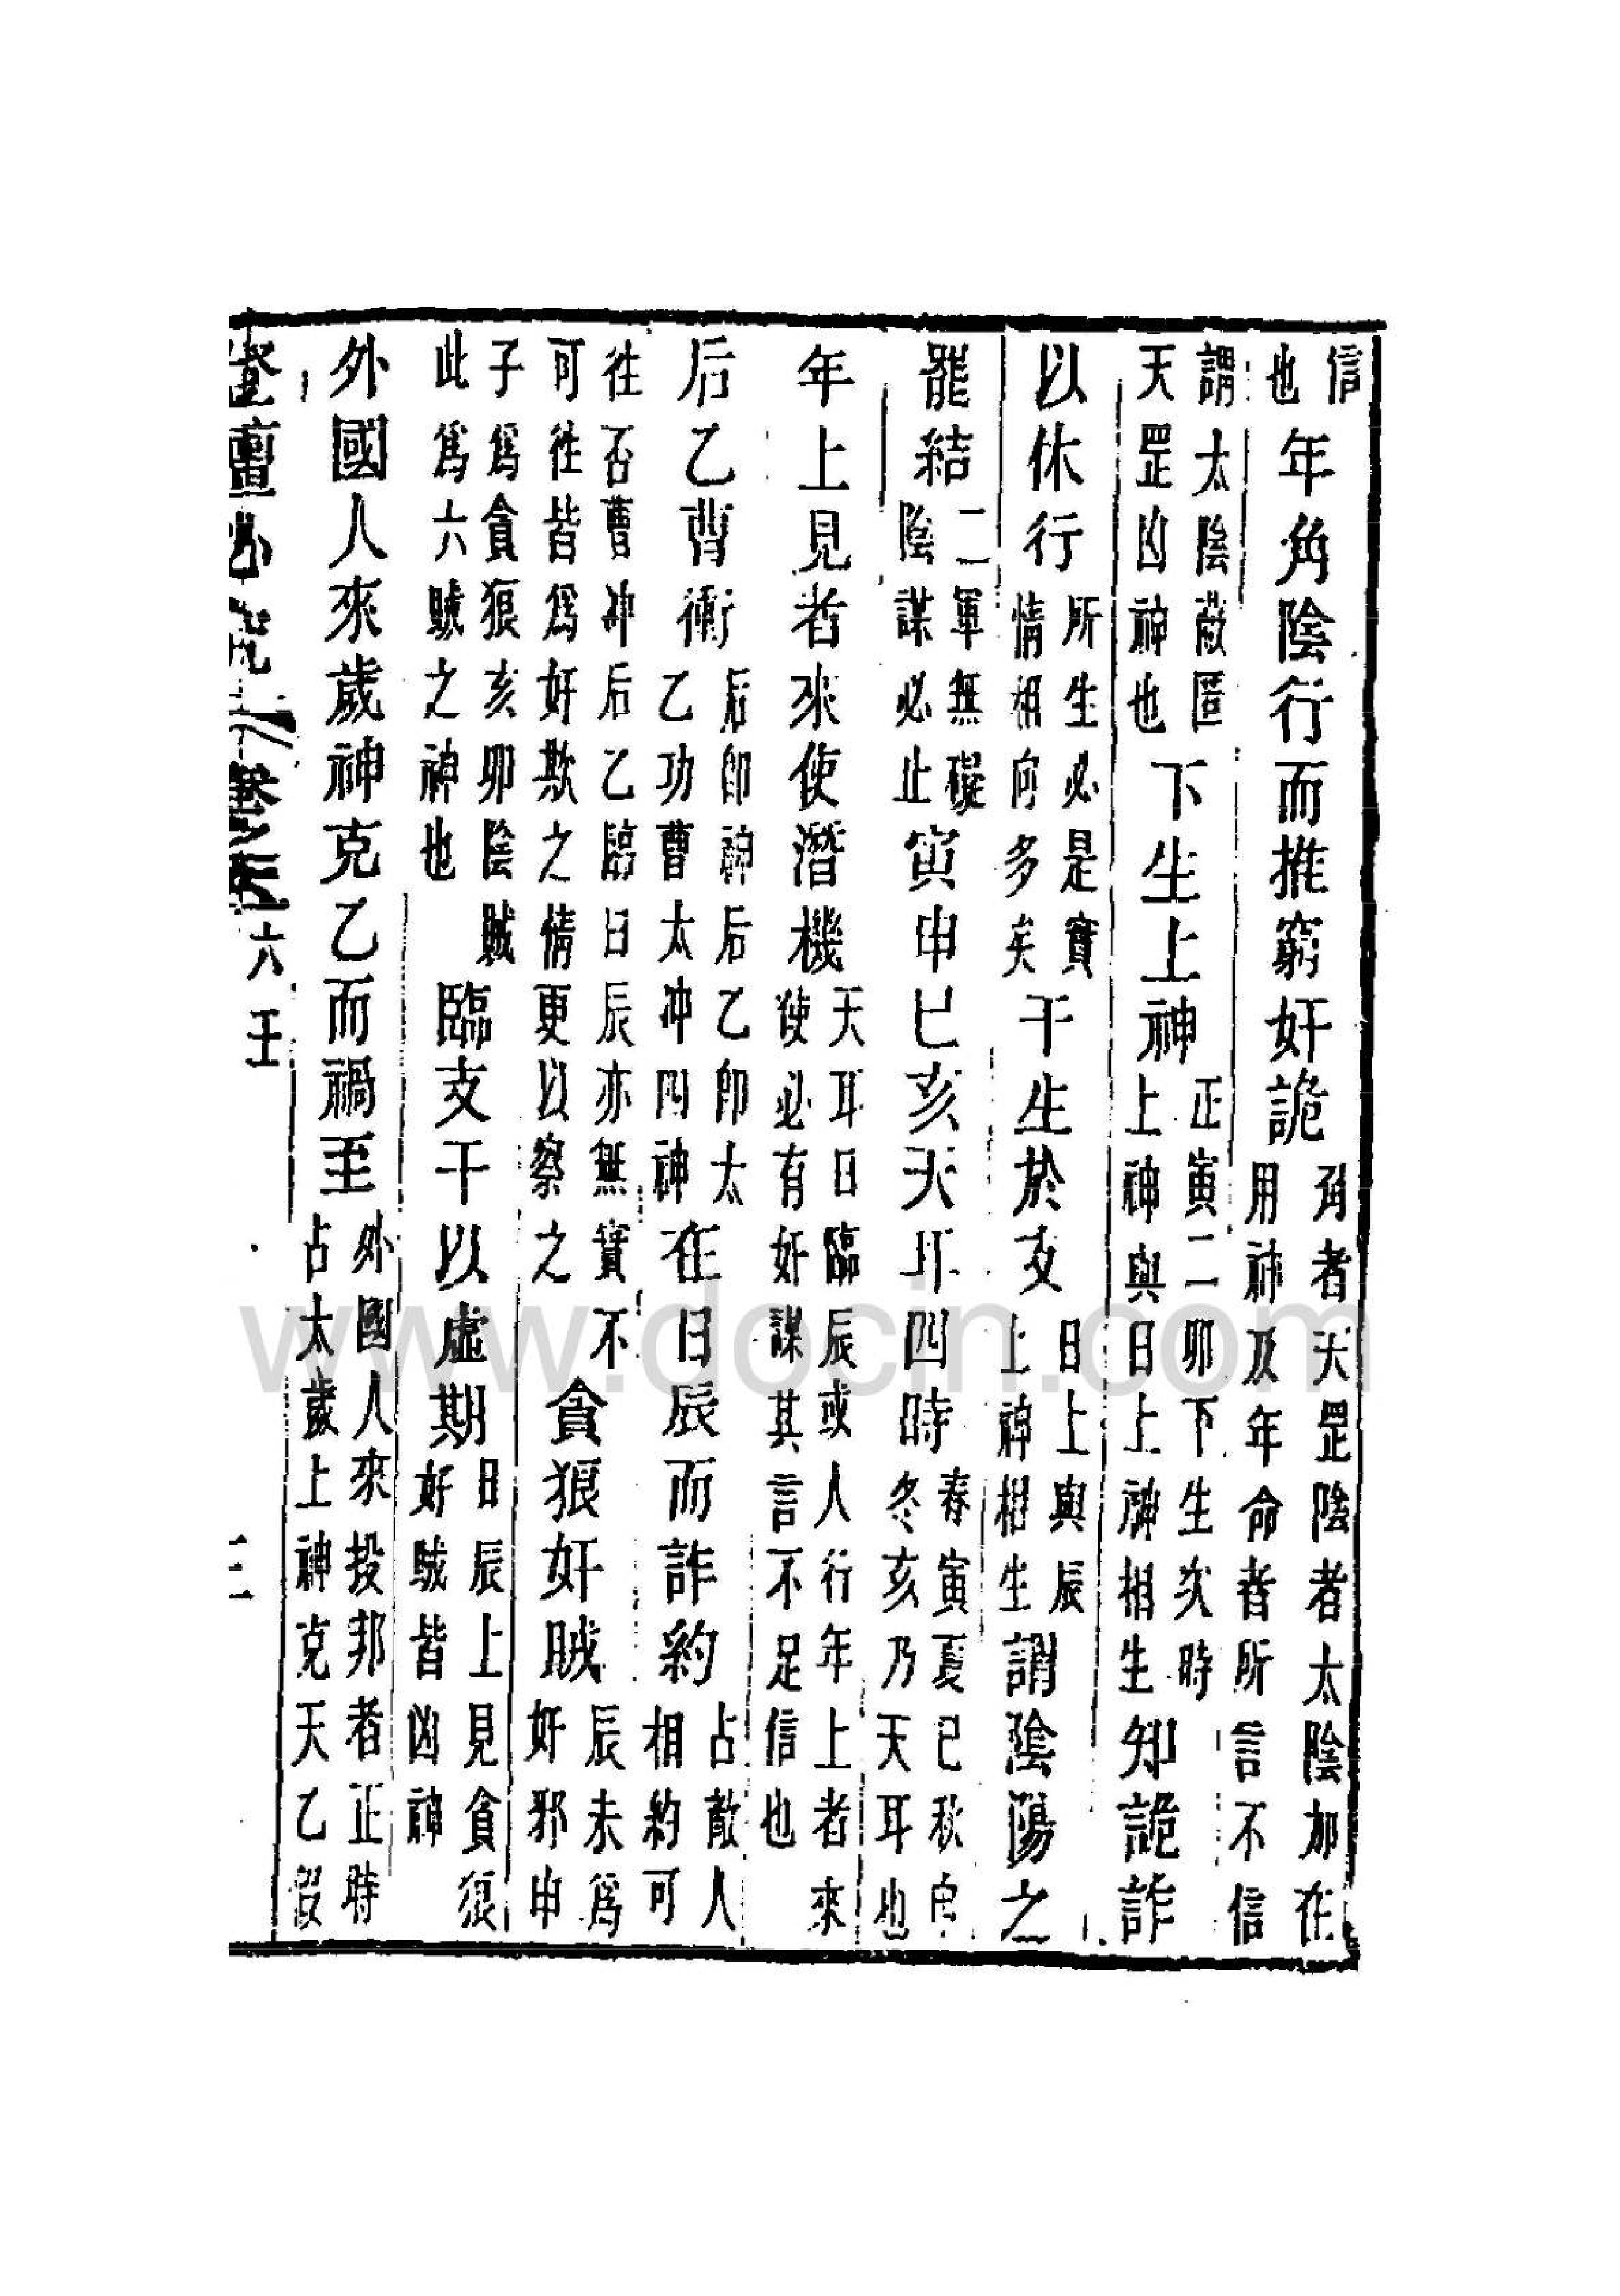 信也年角陰行而推窮奸詭角者天罡陰者太陰加在用神及年命者所言不信
謂太陰蔽匿天罡凶神也下生上神正寅二卯下生次時上神與日上神相生知詭詐
以休行所生必是實情相向多矣干生於支日上與辰上神相生謂陰陽之
罷結二軍無礙陰謀必止寅申巳亥天耳四時春寅夏巳秋申冬亥乃天耳也
年上見者來使潛機天耳日臨辰或人行年上者來使必有奸謀其言不足信也
后乙曹衝后卽神后乙卽太乙功曹太冲四神在日辰而詐約占敵人相約可
往否曹冲后乙臨日辰亦無實不可往皆爲奸欺之情更以察之貪狼奸賊辰未爲奸邪申
子爲貪狼亥卯陰賊此爲六賊之神也臨支干以虛期日辰上見貪狼奸賊皆凶神
外國人來歲神克乙而禍至外國人來投邦者正時占太歲上神克天乙假
登壇必究 卷 六壬 三
www.docin.com